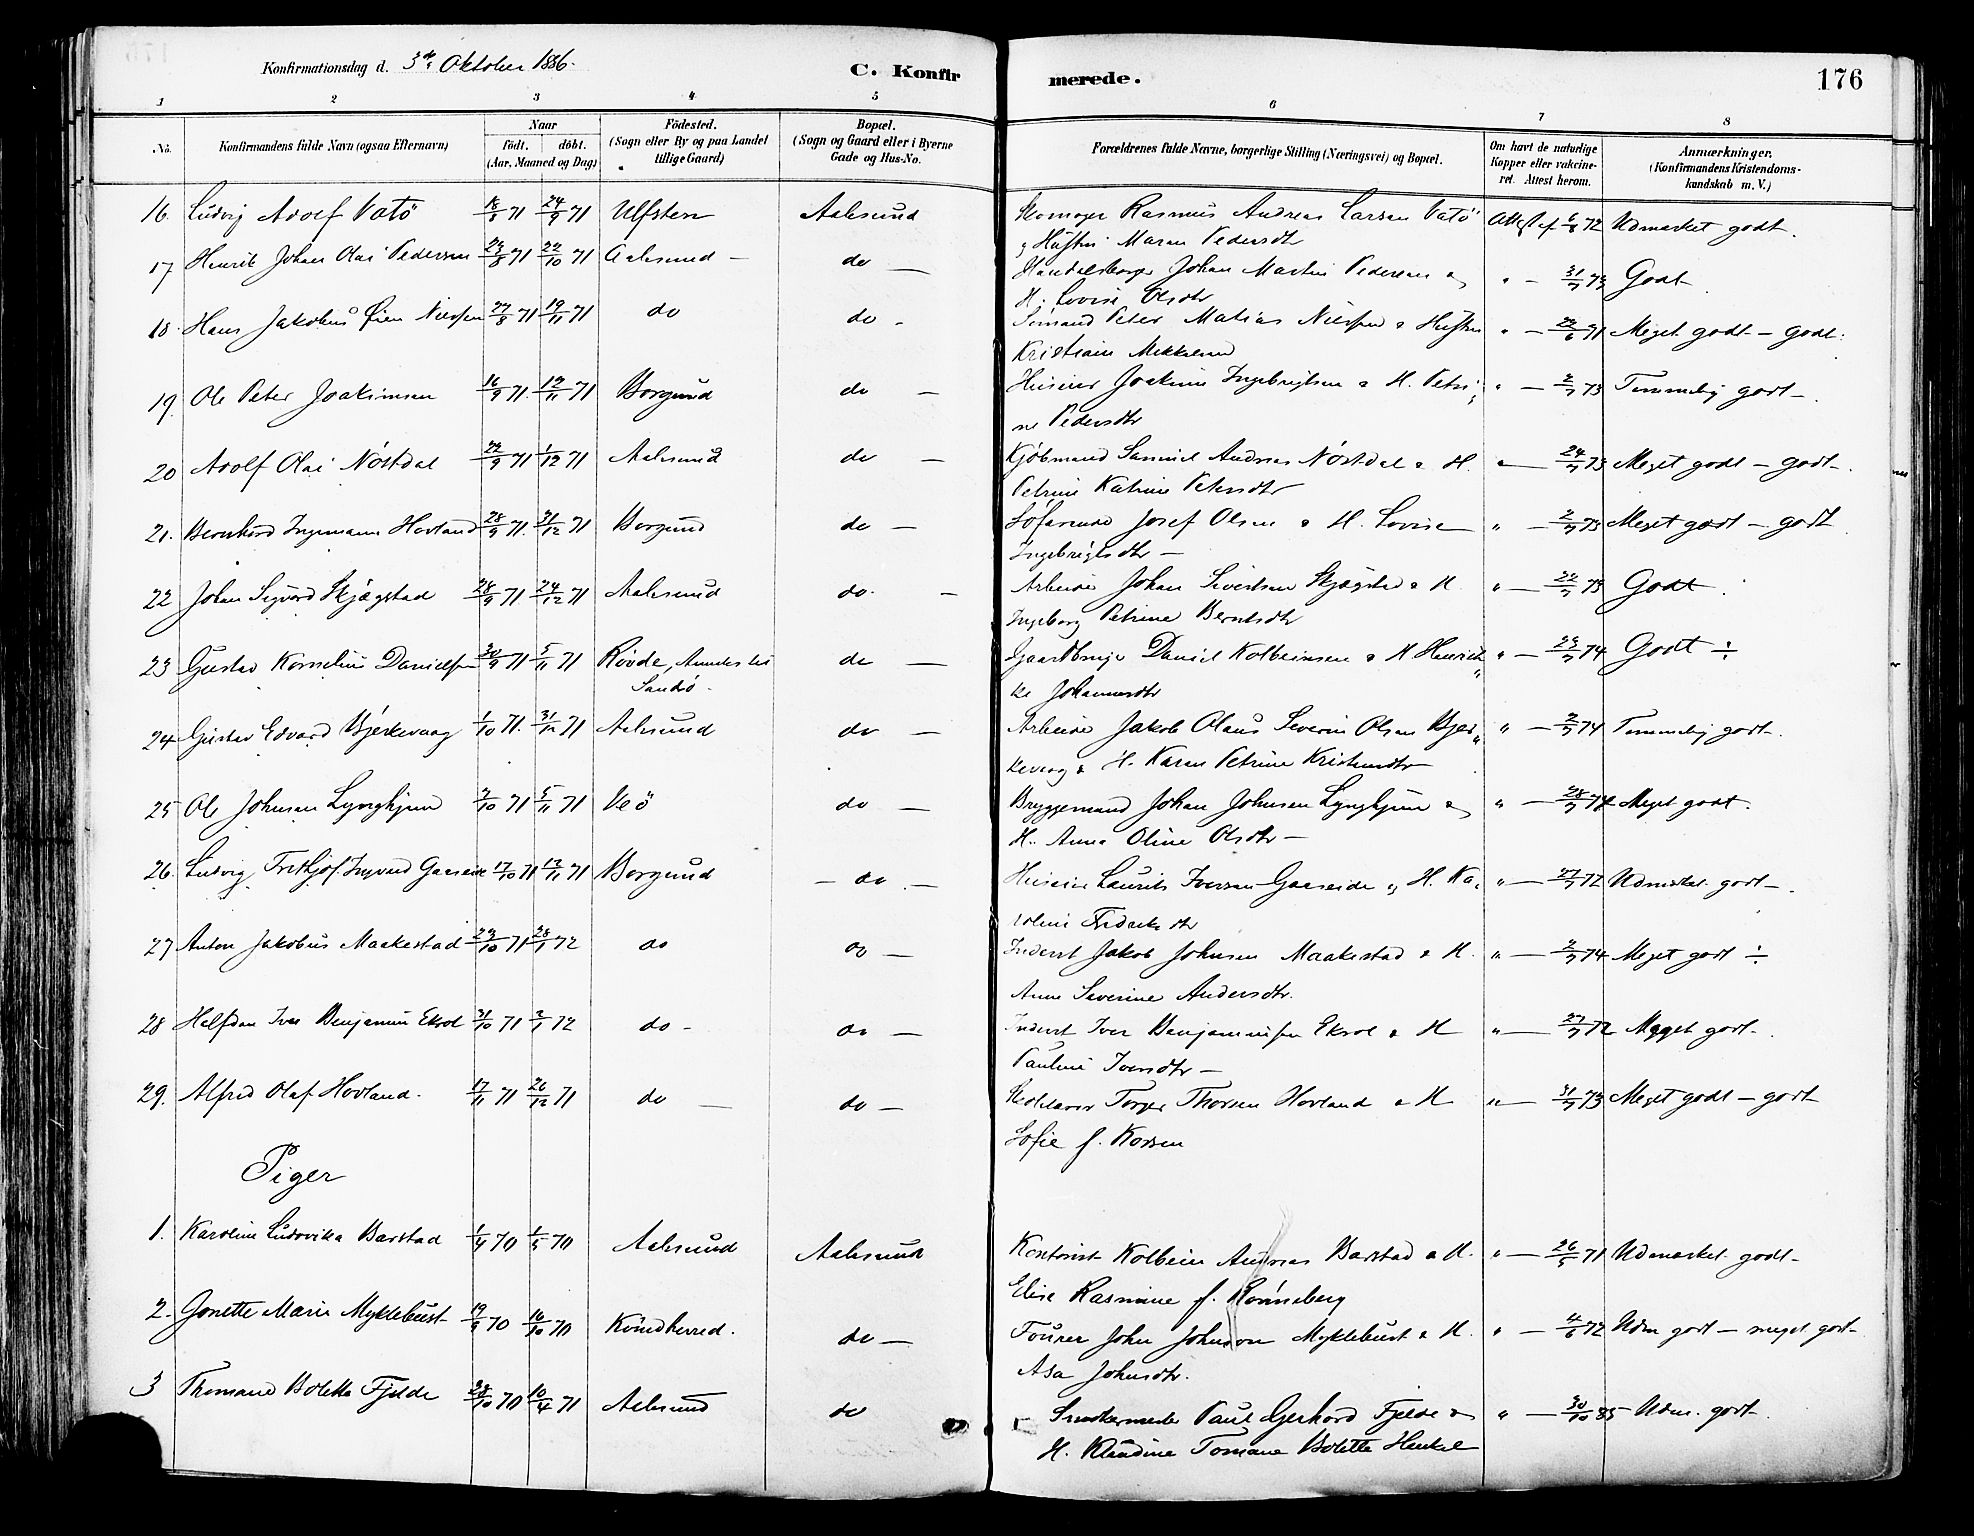 Konfirmationsdag d. 3die Oktober 1886.
C. Konfirmerede.
176
1 2 3 4 5 6 7 8
No. Konfirmandens fulde Navn (ogsaa Efternavn) Naar födt. döbt. (Aar, Maaned og Dag) Födested. (Sogn eller By og paa Landet tillige Gaard) Bopæl. (Sogn og Gaard eller i Byerne Gade og Hus-No. Forældrenes fulde Navne, borgerlige Stilling (Næringsvei) og Bopæl. Om havt de naturlige Kopper eller vakcineret. Attest herom. Anmærkninger. (Konfirmandens Kristendomskundskab m. V.)
16. Ludvig Adolf Vatö 18/8 71 24/9 71 Ulfsten Aalesund Skomager Rasmus Andreas Larsen Vatö Attest af 6/8 72 Udmærket godt.
& Hustru Maren Pedersdtr
17 Henrik Johan Olai Pedersen 23/8 71 22/10 71 Aalesund — do — Handelsborger Johan Martin Pedersen & " — 31/7 73 Godt
H. Lovise Olsdtr
18. Hans Jakobus Øien Nilssen 27/8 71 19/11 71 do do - Sömand Peter Matias Nilssen & Hustru " — 22/6 91 Meget godt — godt.
Kristiane Mikkelsen
19. Ole Peter Joakimsen 16/9 71. 12/11 71 Borgund do — Huseier Joakim Ingebrigtsen & H. Petri- " — 2/7 73 Temmelig godt —.
ne Pedersdtr
20 Adolf Olai Nöstdal 22/9 71 1/12 71 Aalesund do — Kjöbmand Samuel Andreas Nöstdal & H. " — 24/7 73 Meget godt — godt.
Petrine Katrine Petersdtr
21. Bernhard Ingemann Hovland 28/9 71. 31/12 71 Borgund do — Söfarende Josef Olsen & H. Lovise " — 2/7 73 Meget godt — godt
Ingebrigtsdtr —
22 Johan Sigvard Skjægstad 28/9 71 24/12 71 Aalesund do. — Arbeider Johan Sivertsen Skjægstad & H. " — 22/7 73 Godt.
Ingeborg Petrine Berntsdtr
23 Gustav Kornelius Danielsen 30/9 71 5/11 71 Røvde, do — Gaardbruger Daniel Kolbeinsen & H Henrik- " — 23/7 74 Godt ÷
Sandö.
ke Johannesdtr
24 Gustav Edvard Bjerkevaag 1/10 71. 31/12 71 Aalesund do — Arbeider Jakob Olaus Severin Olsen Bjer- " — 2/7 74 Temmelig godt.
kevaag & H. Karen Petrine Kristensdtr
25 Ole Johnsen Lynghjem 2/10 71 5/11 71 Veö do — Bryggemand Johan Johnsen Lynghjem & " — 28/7 74 Meget godt.
H. Anna Oline Olsdtr —
26. Ludvig Frithjof Ingvard Gaaseide 17/10 71 12/11 71 Borgund — do. — Huseier Laurits Iversen Gaaseide og H. Ka- " — 27/7 72 Udmærket godt —.
roline Fredriksdtr
27 Anton Jakobus Maakestad 29/10 71 28/1 72 do do — Inderst Jakob Johnsen Maakestad & H. " — 2/7 74 Meget godt ÷
Anne Severine Andersdtr.
28 Halfdan Iver Benjamin Ekrol 31/10 71 2/1 72 do - do — Inderst Iver Benjaminsen Ekrol & H " — 27/7 72 Meget godt.
Pauline Iversdtr —
29. Alfred Olaf Hovland. 17/11 71 26/12 71 do — do — Torger Thorsen Hovland & H " — 31/7 73 Meget godt — godt
Sofie f. Korsen
Piger
1. Karoline Ludovika Barstad 1/4 70 1/5 70 Aalesund Aalesund Kontorist Kolbein Andreas Barstad & H. " — 26/5 71 Udmærket godt —
Elise Rasmine f. Rönneberg
2. Jonette Marie Myklebust 19/9 70 16/10 70 do — John Johnson Myklebust & H. " — 4/6 72 Udm godt — meget godt —
Asa Johnsdtr.
3 Thomane Bolette Fjelde 28/10 70 10/4 71 Aalesund do Paul Gerhard Fjelde & " — 30/10 85 Udm. godt.
H. Klaudine Tomane Bolette Henkel